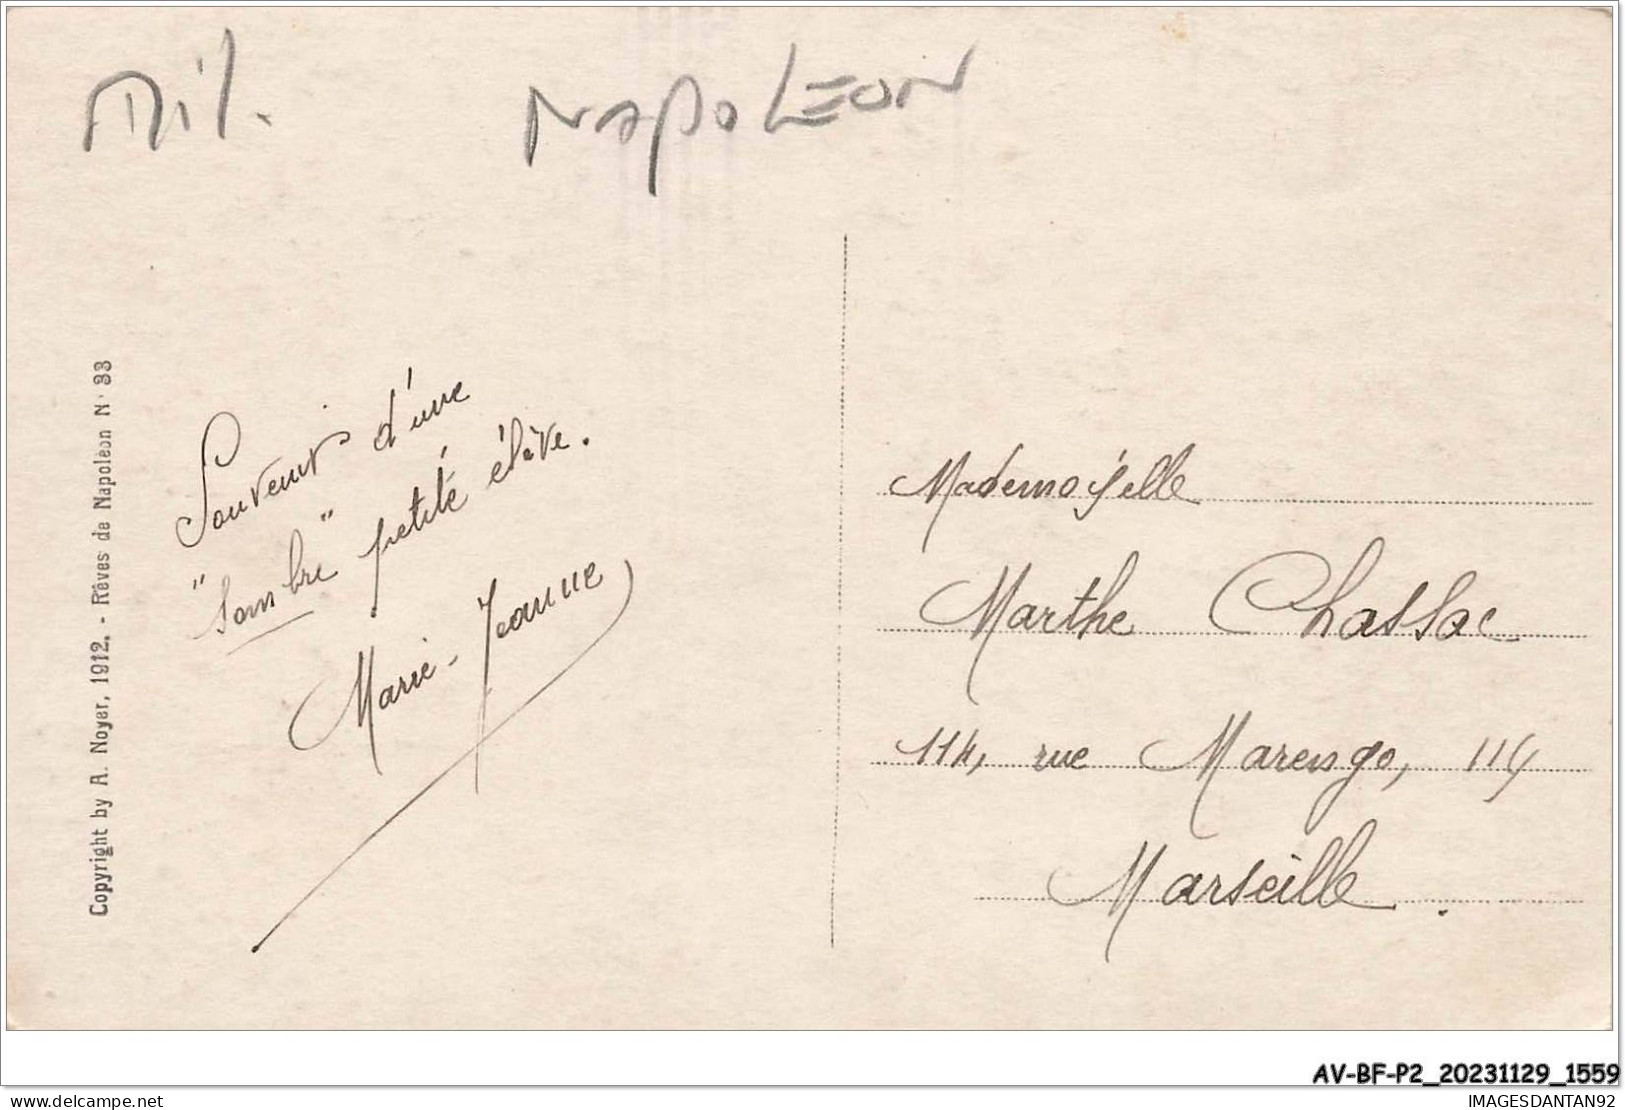 Mil.
NAPOLEON
Copyright by A. Noyer, 1912. - Rêves de Napoléon N° 33
Souvenirs d'une
"sombre" petite élève.
Marie-Jeanne
Mademoiselle
Marthe Chassac
114, rue Marengo, 114
Marseille.
AV-BF-P2_20231129_1559
delcampe.net
IMAGESDANTAN92